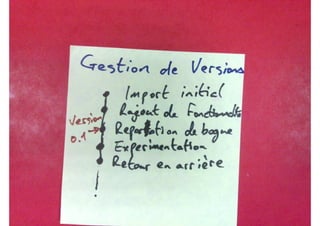 Gestion de Versions
Import initial
Rajout de Fonctionnalité
version
0.1 → Reparation de bogue
Experimentation
Retour en arrière